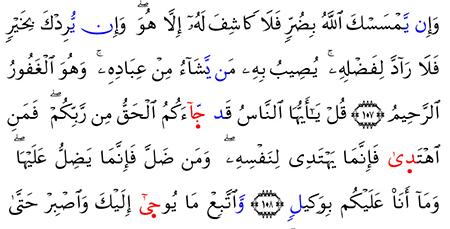 وَإِن يَّمْسَسْكَ اللَّهُ بِضُرٍّ فَلَا كَاشِفَ لَهُۥٓ إِلَّا هُوَۖ وَإِن يُّرِدْكَ بِخَيْرٍ
فَلَا رَآدَّ لِفَضْلِهِۦۚ يُصِيبُ بِهِۦ مَن يَّشَآءُ مِنْ عِبَادِهِۦۚ وَهُوَ الْغَفُورُ
الرَّحِيمُ ﴿١٠٧﴾ قُلْ يَٰٓأَيُّهَا النَّاسُ قَد جَّآءَكُمُ الْحَقُّ مِن رَّبِّكُمْۖ فَمَنِ
اهْتَدَىٰ فَإِنَّمَا يَهْتَدِى لِنَفْسِهِۦۖ وَمَن ضَلَّ فَإِنَّمَا يَضِلُّ عَلَيْهَاۖ
وَمَآ أَنَا۠ عَلَيْكُم بِوَكِيلٍ ﴿١٠٨﴾ وَّاتَّبِعْ مَا يُوحَىٰٓ إِلَيْكَ وَاصْبِرْ حَتَّىٰ